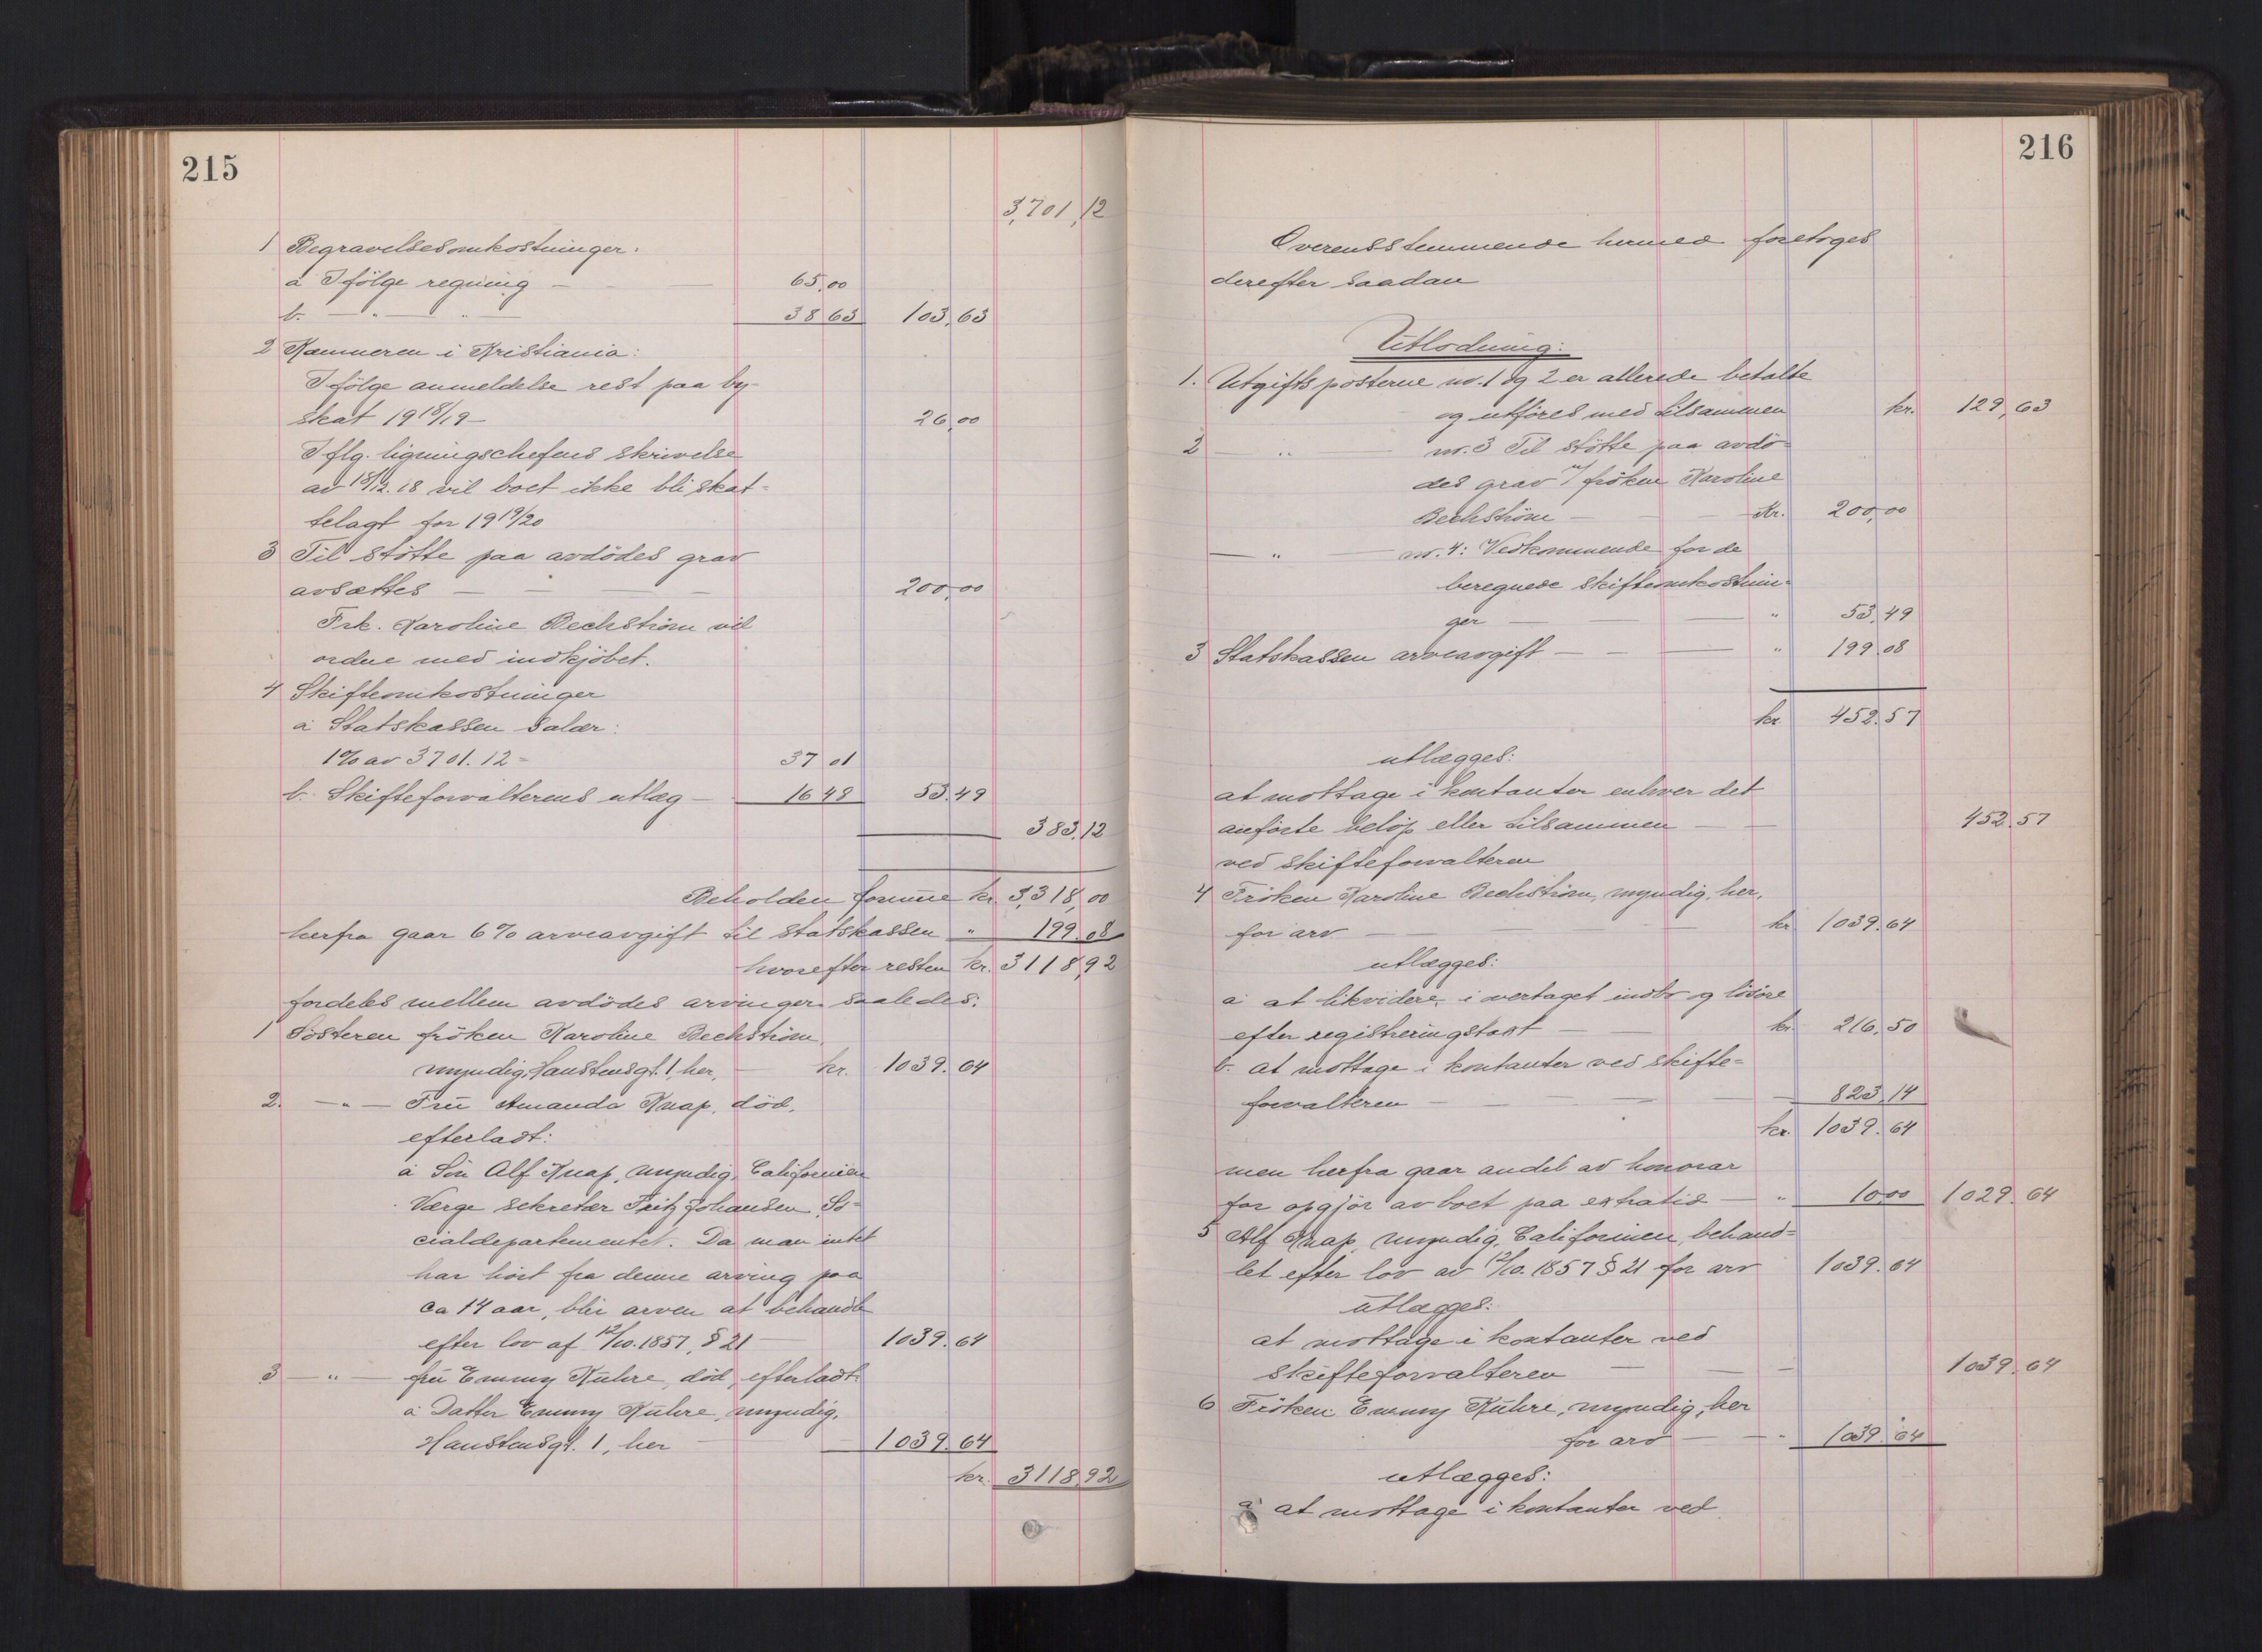 215
3,701,12
1 Begravelsesomkostninger:
a Ifölge regning — 65,00
b. — " — " — 38 63 103,63
2 Kæmneren i Kristiania:
Ifölge anmeldelse rest paa by-
skat 19 18/19 — 26,00
Iflg. ligningschefens skrivelse
av 18/12.18 vil boet ikke bli skat-
telagt for 19 19/20
3 Til stötte paa avdödes grav
avsættes — 200,00
Frk. Karoline Bechström vil
ordne med indkjöbet.
4 Skifteomkostninger
a Statskassen salær:
1% av 3701.12 = 37 01
b. Skifteforvalterens utlæg — 16 48 53.49
383,12
Beholden formue kr. 3,318,00
herfra gaar 6% arveavgift til statskassen " 199.08
hvorefter resten kr. 3118,92
fordeles mellem avdödes arvinger saaledes:
1 Sösteren fröken Karoline Bechström,
myndig, Haustensgt. 1, her, — kr. 1039.64
2. — " — Frü Amanda Knap, död,
efterladt:
a Sön Alf Knap, umyndig, Californien
Værge sekretær Fritz Johansen, So-
cialdepartementet. Da man intet
har hört fra denne arving paa
ca 14 aar, blir arven at behandle
efter lov af 12/10.1857, § 21 — 1039.64
3 — " — frü Emmy Kühre, död, efterladt:
a Datter Emmy Kühre, myndig,
Haustensgt. 1, her — 1039.64
kr. 3118,92
216
Overensstemmende hermed foretoges
derefter saadan
Utlodning:
1. Utgiftsposterne nr. 1 og 2 er allerede betalte
og utföres med tilsammen kr. 129,63
2 — " — nr. 3 Til stötte paa avdö-
des grav v/ fröken Karoline
Bechström — Kr. 200,00
— " — nr. 4: Vedkommende for de
beregnede skifteomkostnin-
ger — " 53,49
3 Statskassen arveavgift — " 199.08
kr. 452.57
utlægges:
at mottage i kontanter enhver det
anförte belöp eller tilsammen — 452.57
ved skifteforvalteren
4 Fröken Karoline Bechström, myndig, her,
for arv — kr 1039.64
utlægges:
a at likvidere i overtaget indbo og lösöre
efter registreringstakst — kr. 216,50
b. at mottage i kontanter ved skifte-
forvalteren — 823,14
kr. 1039.64
men herfra gaar andel av honorar
for opgjör av boet paa extratid — " 10,00 1029.64
5 Alf Knap, umyndig, Californien, behand-
let efter lov av 12/10.1857 § 21 for arv 1039.64
utlægges:
at mottage i kontanter ved
skifteforvalteren — 1039.64
6 Fröken Emmy Kühre, myndig, her
for arv — " 1039.64
utlægges:
a at mottage i kontanter ved